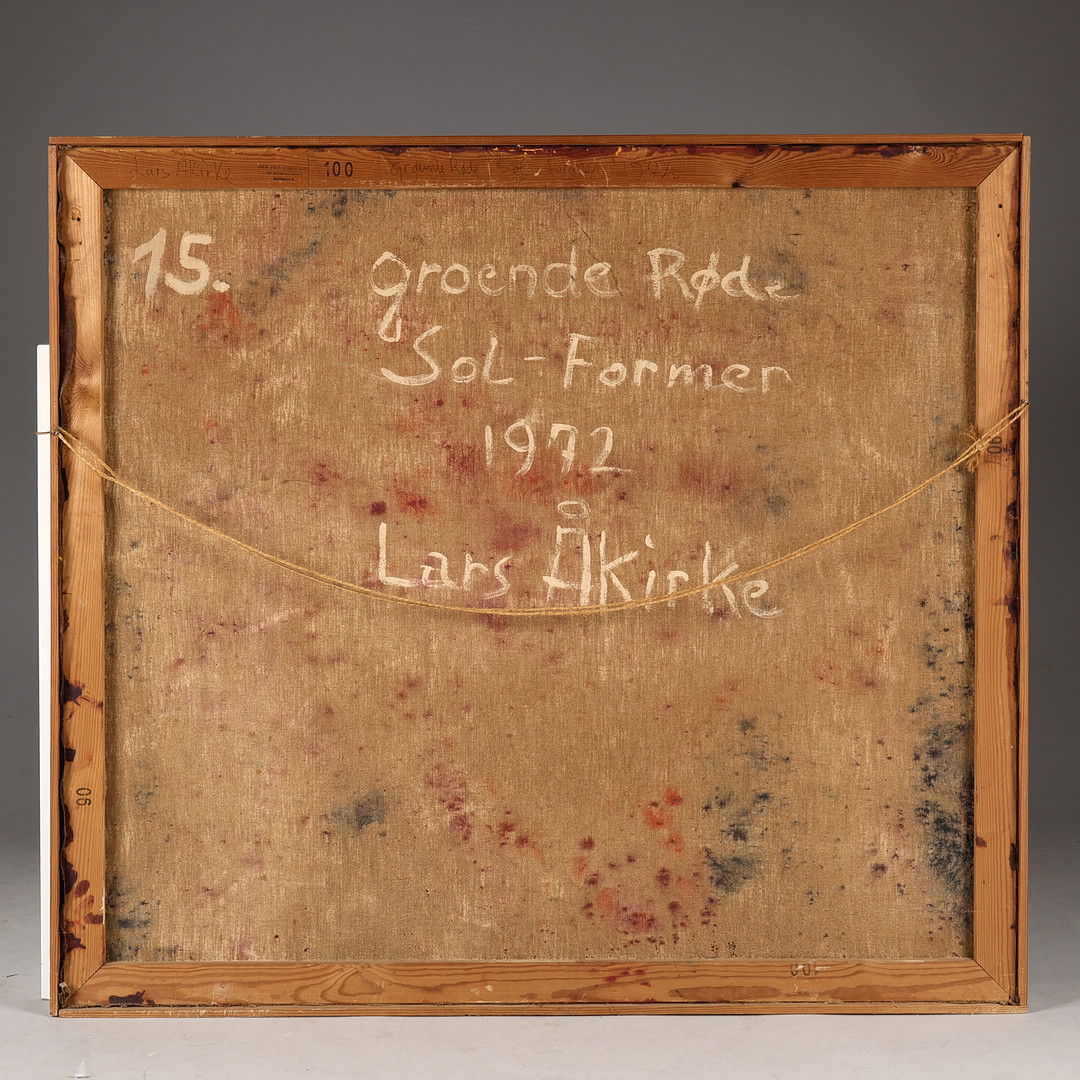 Lars Åkirke 100 Groende Røde Sol-Former 1972
15. groende Røde
Sol-Former
1972
Lars Åkirke
90
90
100